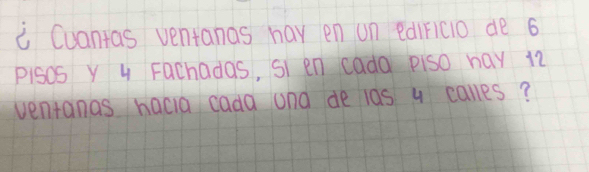 ¿ Cuantas ventanas hay en un edificio de 6
pisos y 4 Fachadas, si en cada piso hay 12
ventanas hacia cada una de las 4 calles ?